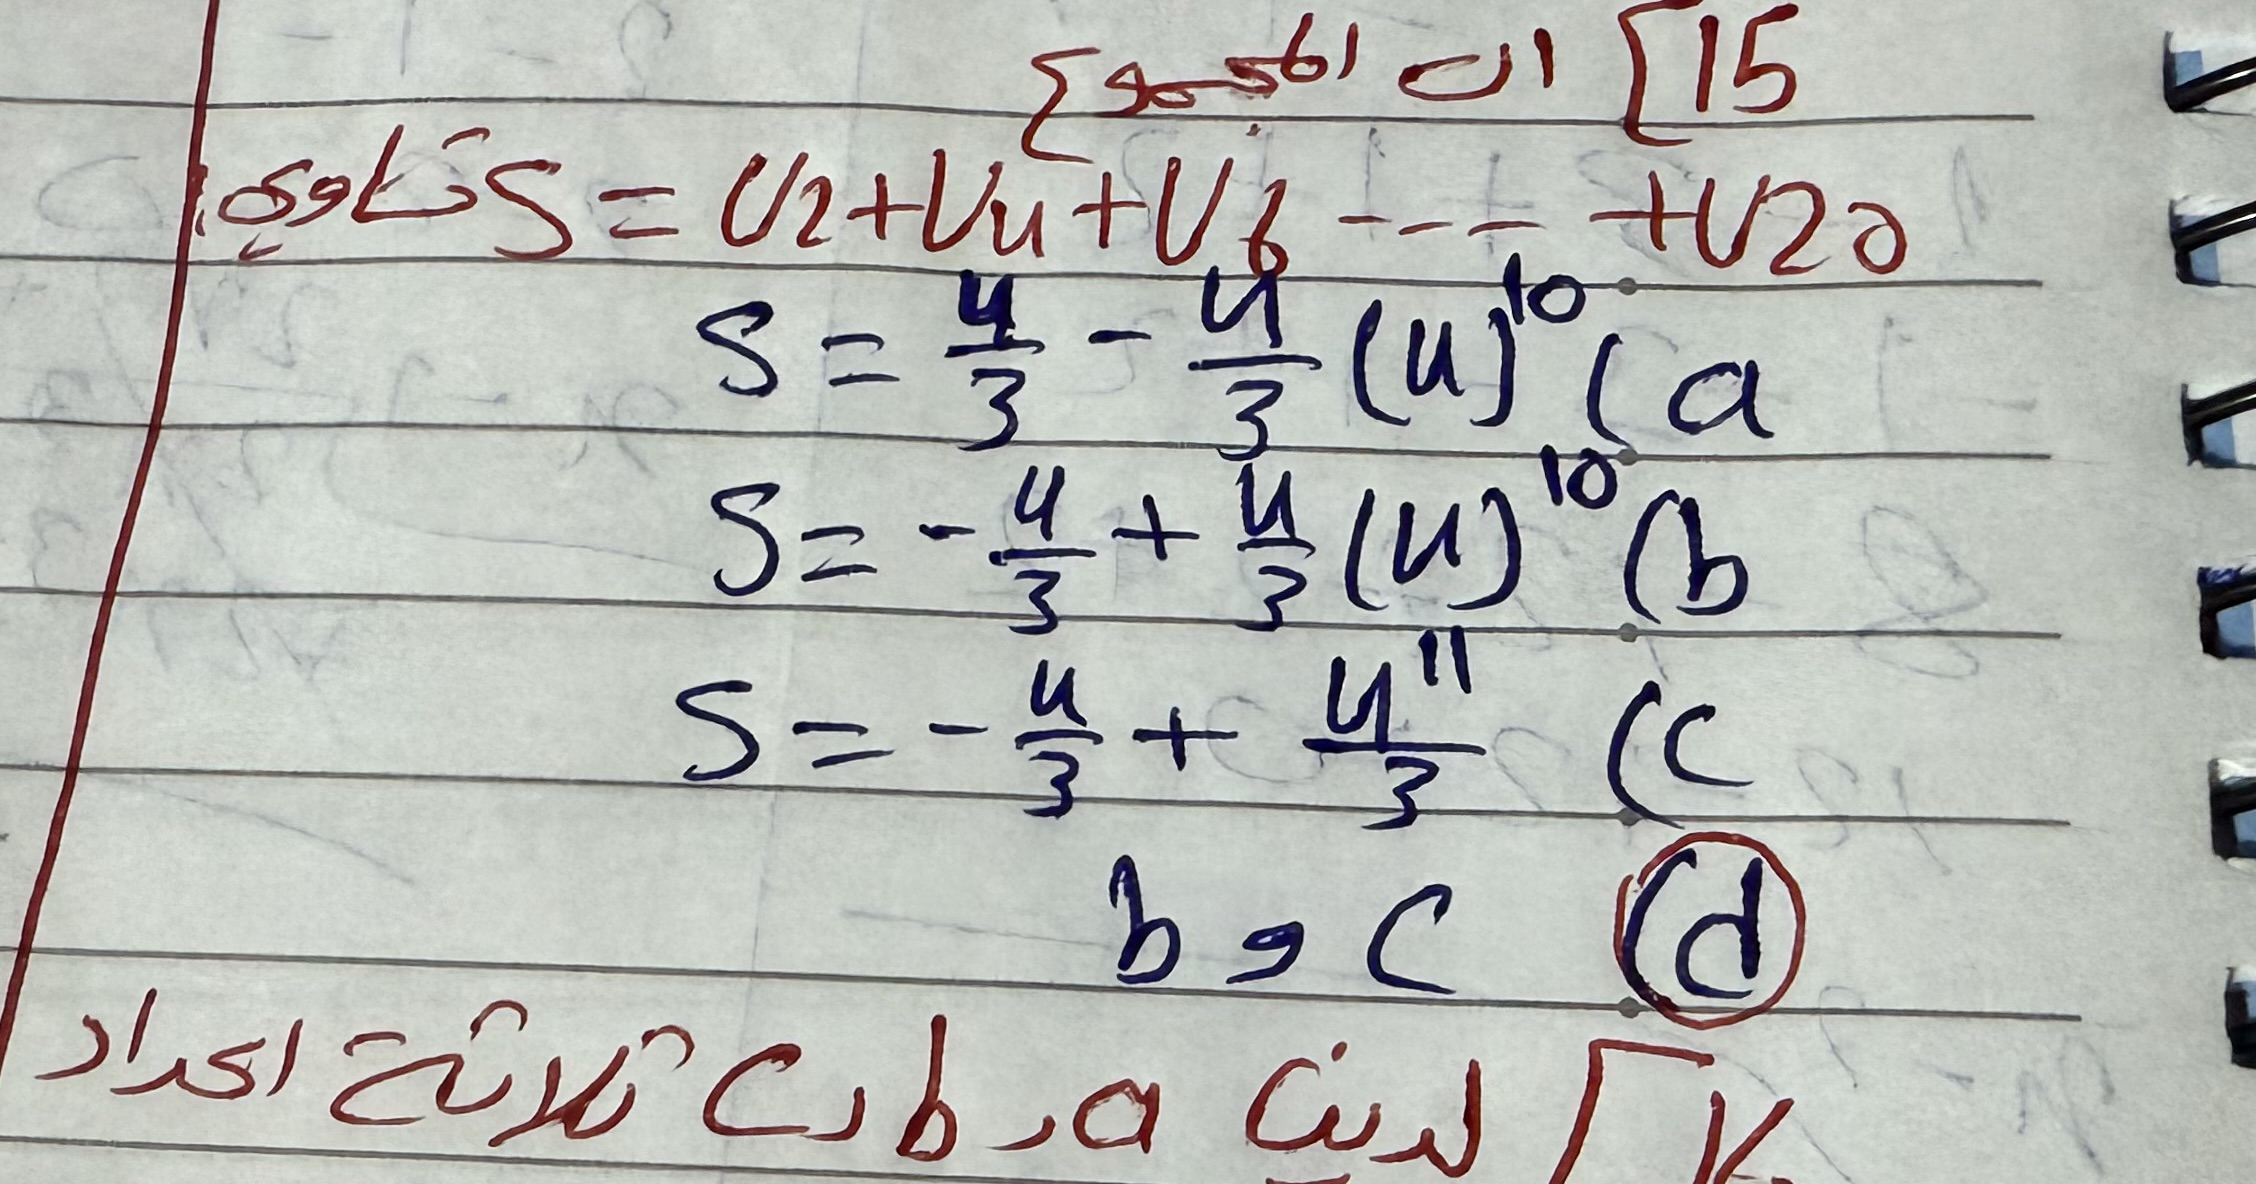 15] ان المجموع
S = U2 + U4 + U6 - - - - + U20 تساوي:
a) S = 4/3 - 4/3 (4)^10
b) S = - 4/3 + 4/3 (4)^10
c) S = - 4/3 + 4^11/3
d) b و c
لدينا a، b، c ثلاثة اعداد